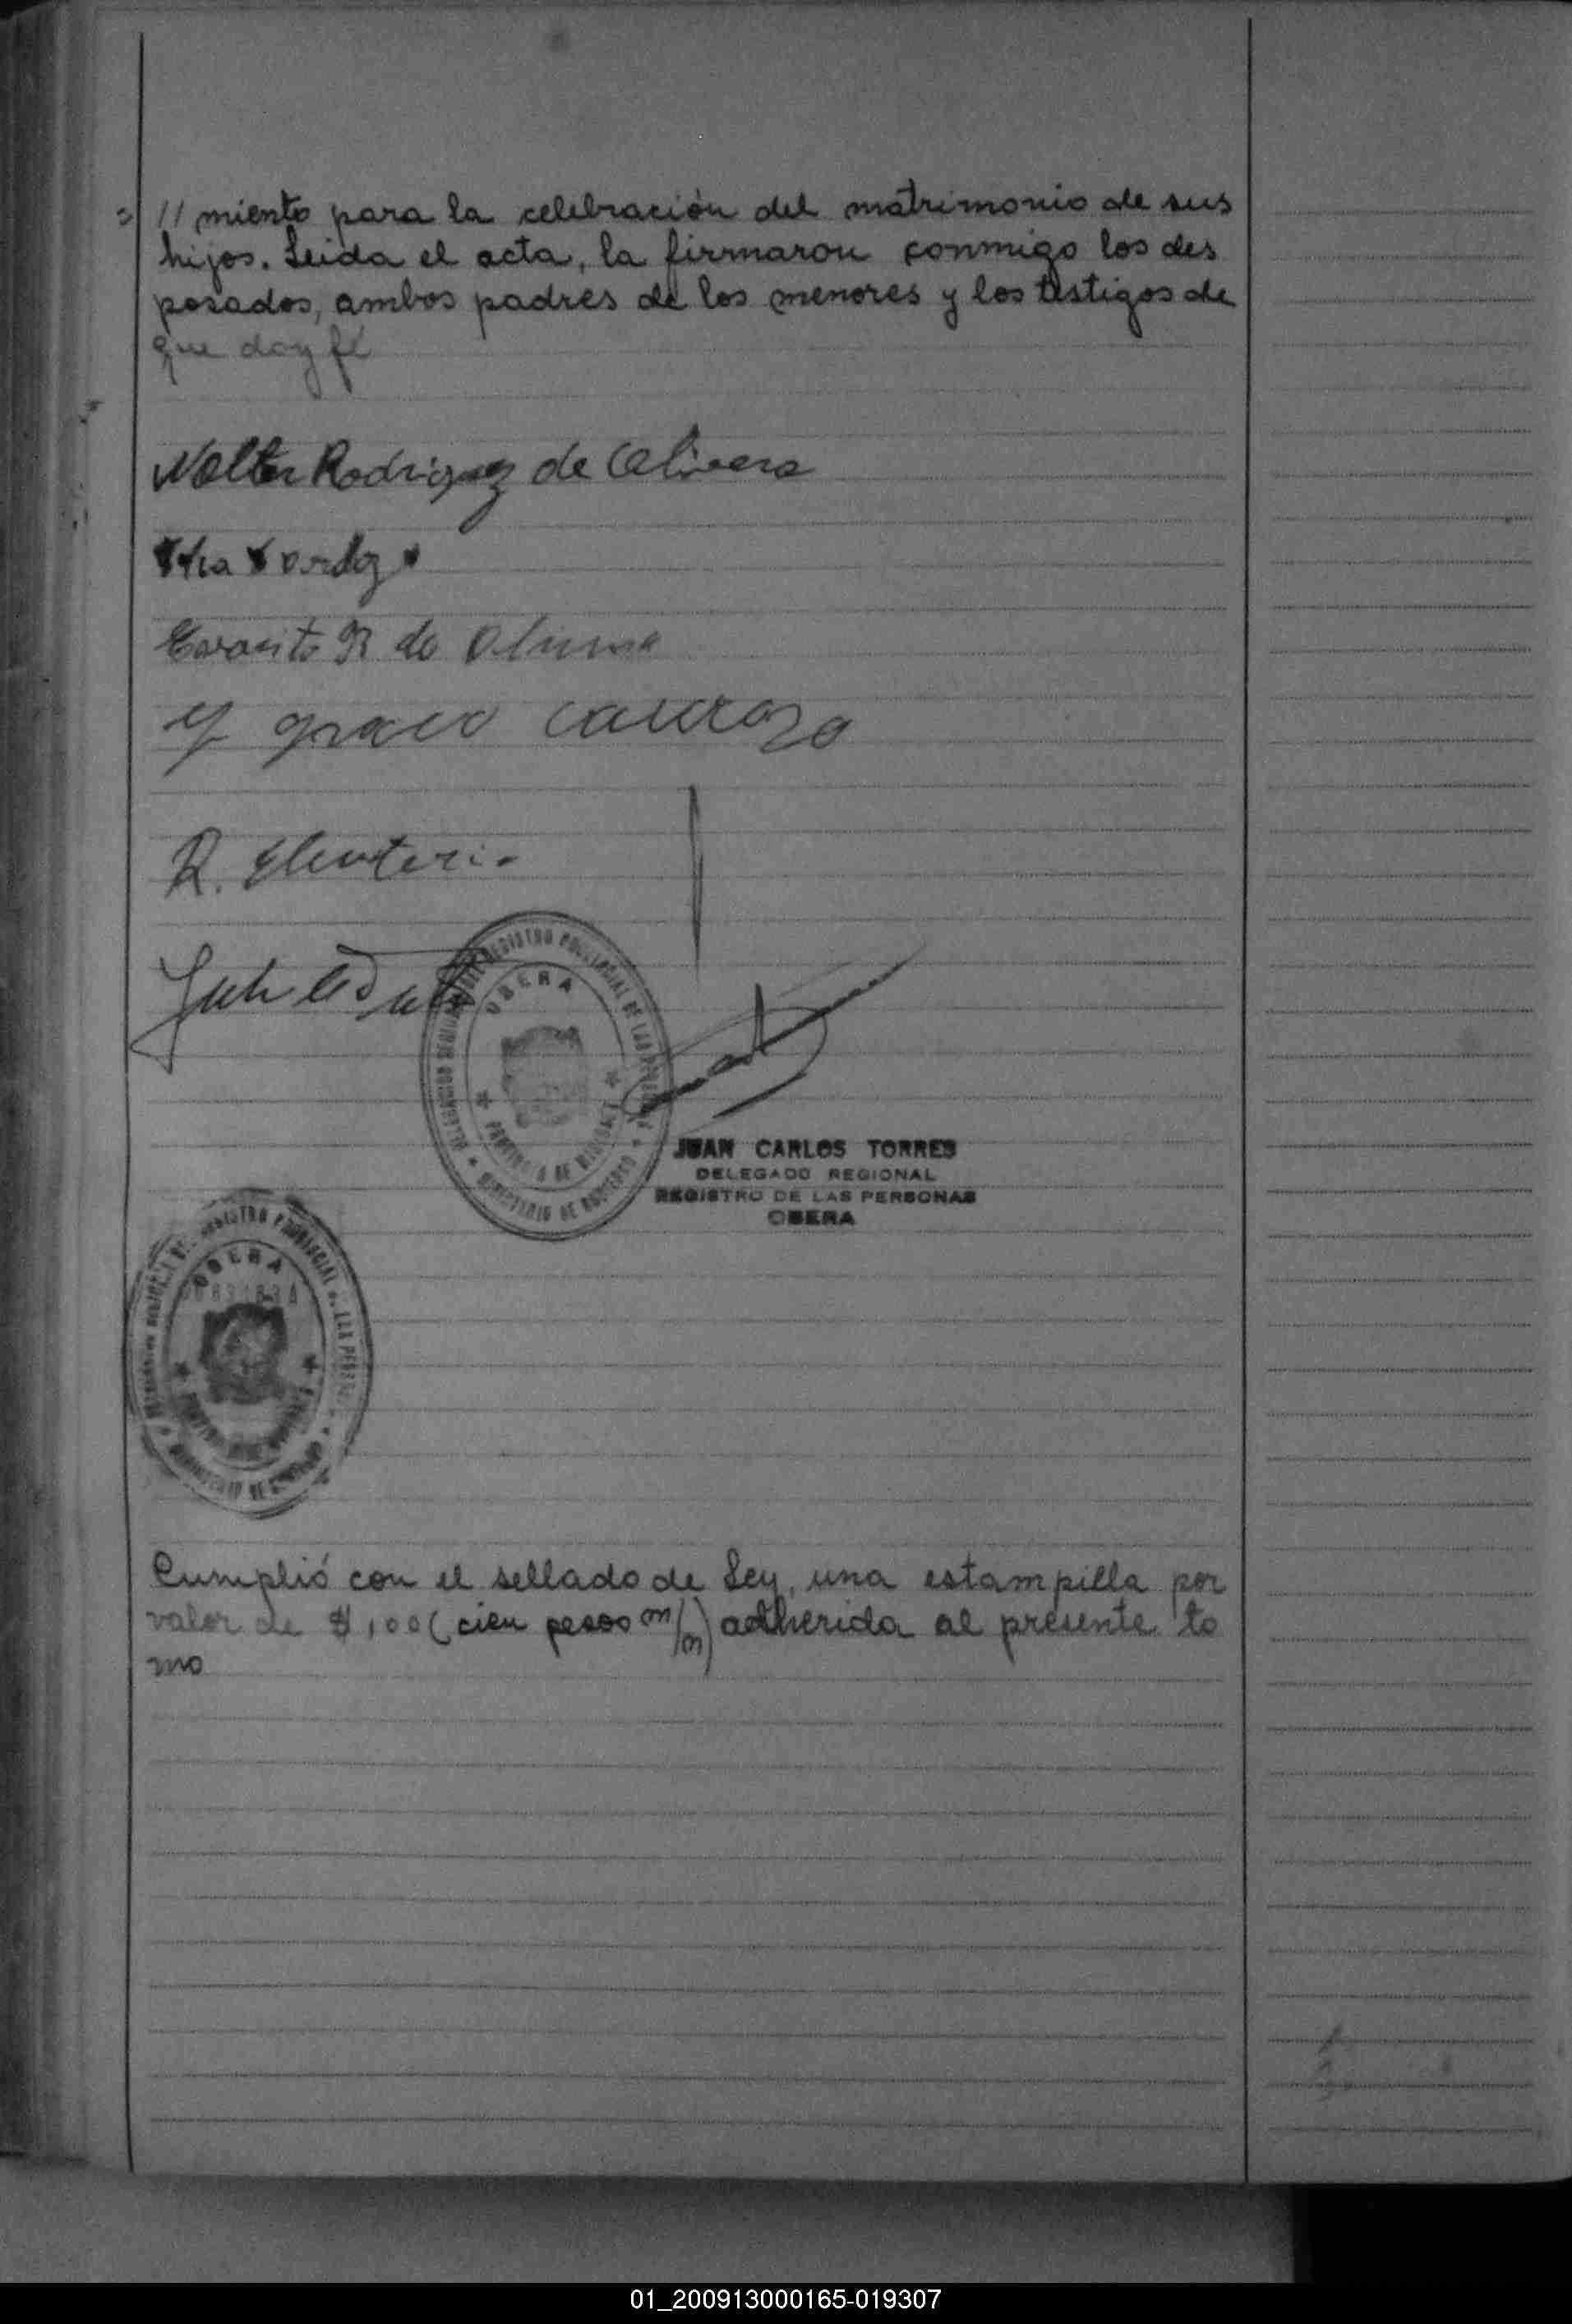 // miento para la celebración del matrimonio de sus
hijos. Leida el acta, la firmaron conmigo los des
posados, ambos padres de los menores y los testigos de
que doy fé
Walter Rodriguez de Olivera
R. de
R. Eleuterio
REGISTRO PROVINCIAL DE LAS
OBERA
PROVINCIA DE MISIONES
MINISTERIO DE GOBIERNO
JUAN CARLOS TORRES
DELEGADO REGIONAL
REGISTRO DE LAS PERSONAS
OBERA
REGISTRO PROVINCIAL DE LAS
OBERA
MINISTERIO DE GOBIERNO
Cumplió con el sellado de Ley, una estampilla por
valor de $ 100 (cien pesos m/m) adherida al presente to
mo
01_200913000165-019307